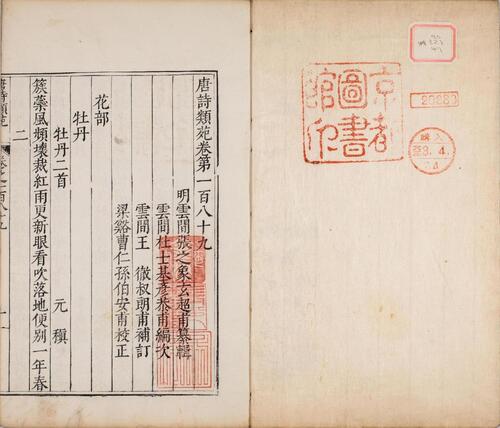 唐詩類苑卷第一百八十九
明雲間張之象玄超甫纂輯
雲間杜士基彥恭甫編次
雲間王徹叔朗甫補訂
梁谿曹仁孫伯安甫校正
花部
牡丹
牡丹二首
元稹
簇蘂風頻壞裁紅雨更新眼看吹落地便別一年春
二
唐詩類苑
京都圖書館印
20680
購入